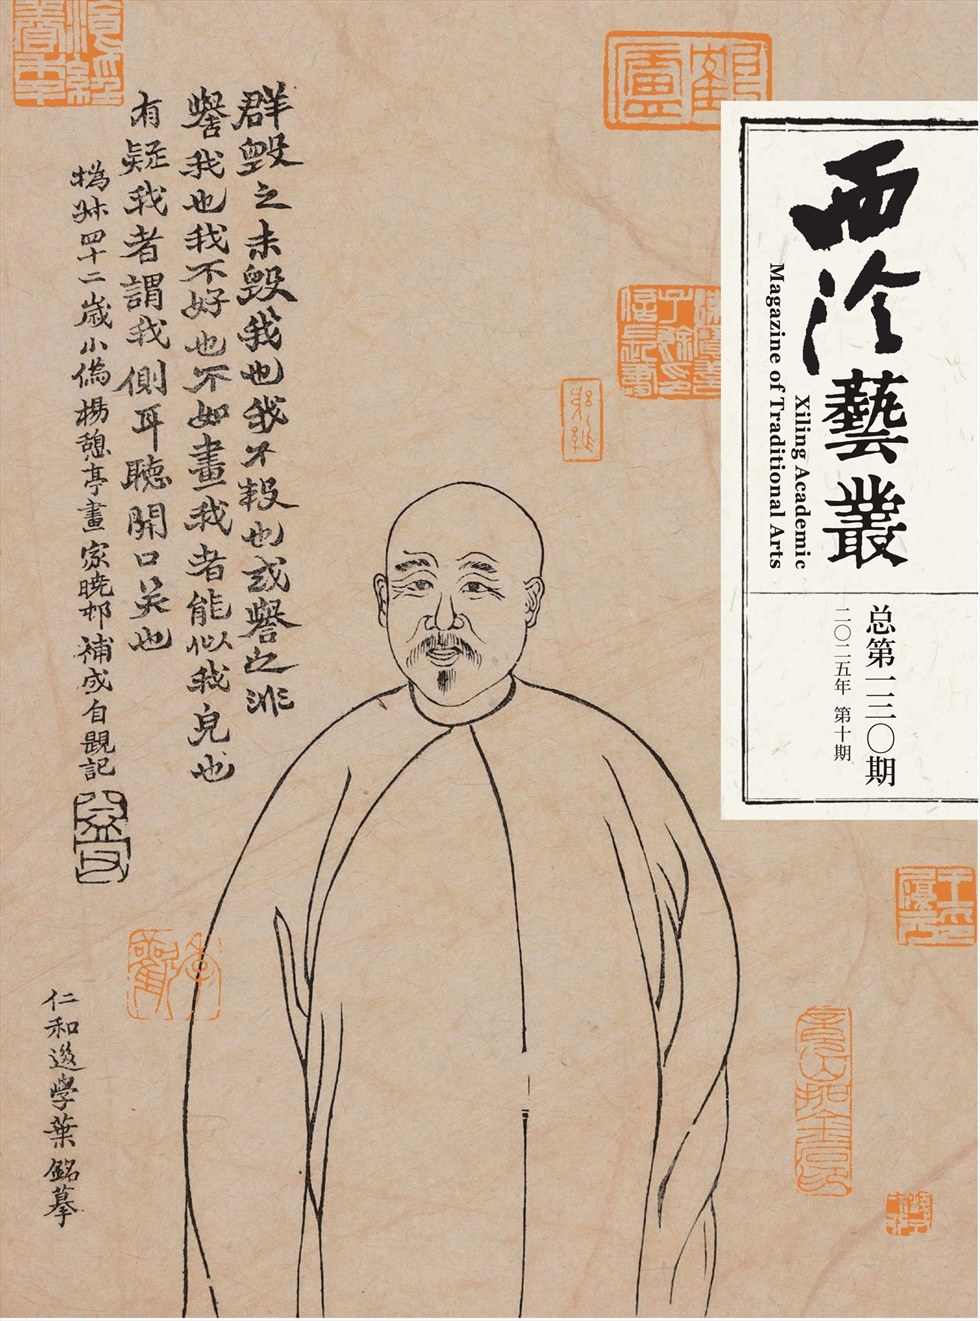 西泠藝叢
Xiling Academic
Magazine of Traditional Arts
总第一三〇期
二〇二五年 第十期
群毀之未毀我也我不報也或譽之非
譽我也我不好也不如畫我者能似我皃也
有疑我者謂我側耳聽開口笑也
撝叔四十二歲小像楊憩亭畫家曉邨補成自題記
仁和後學葉銘摹